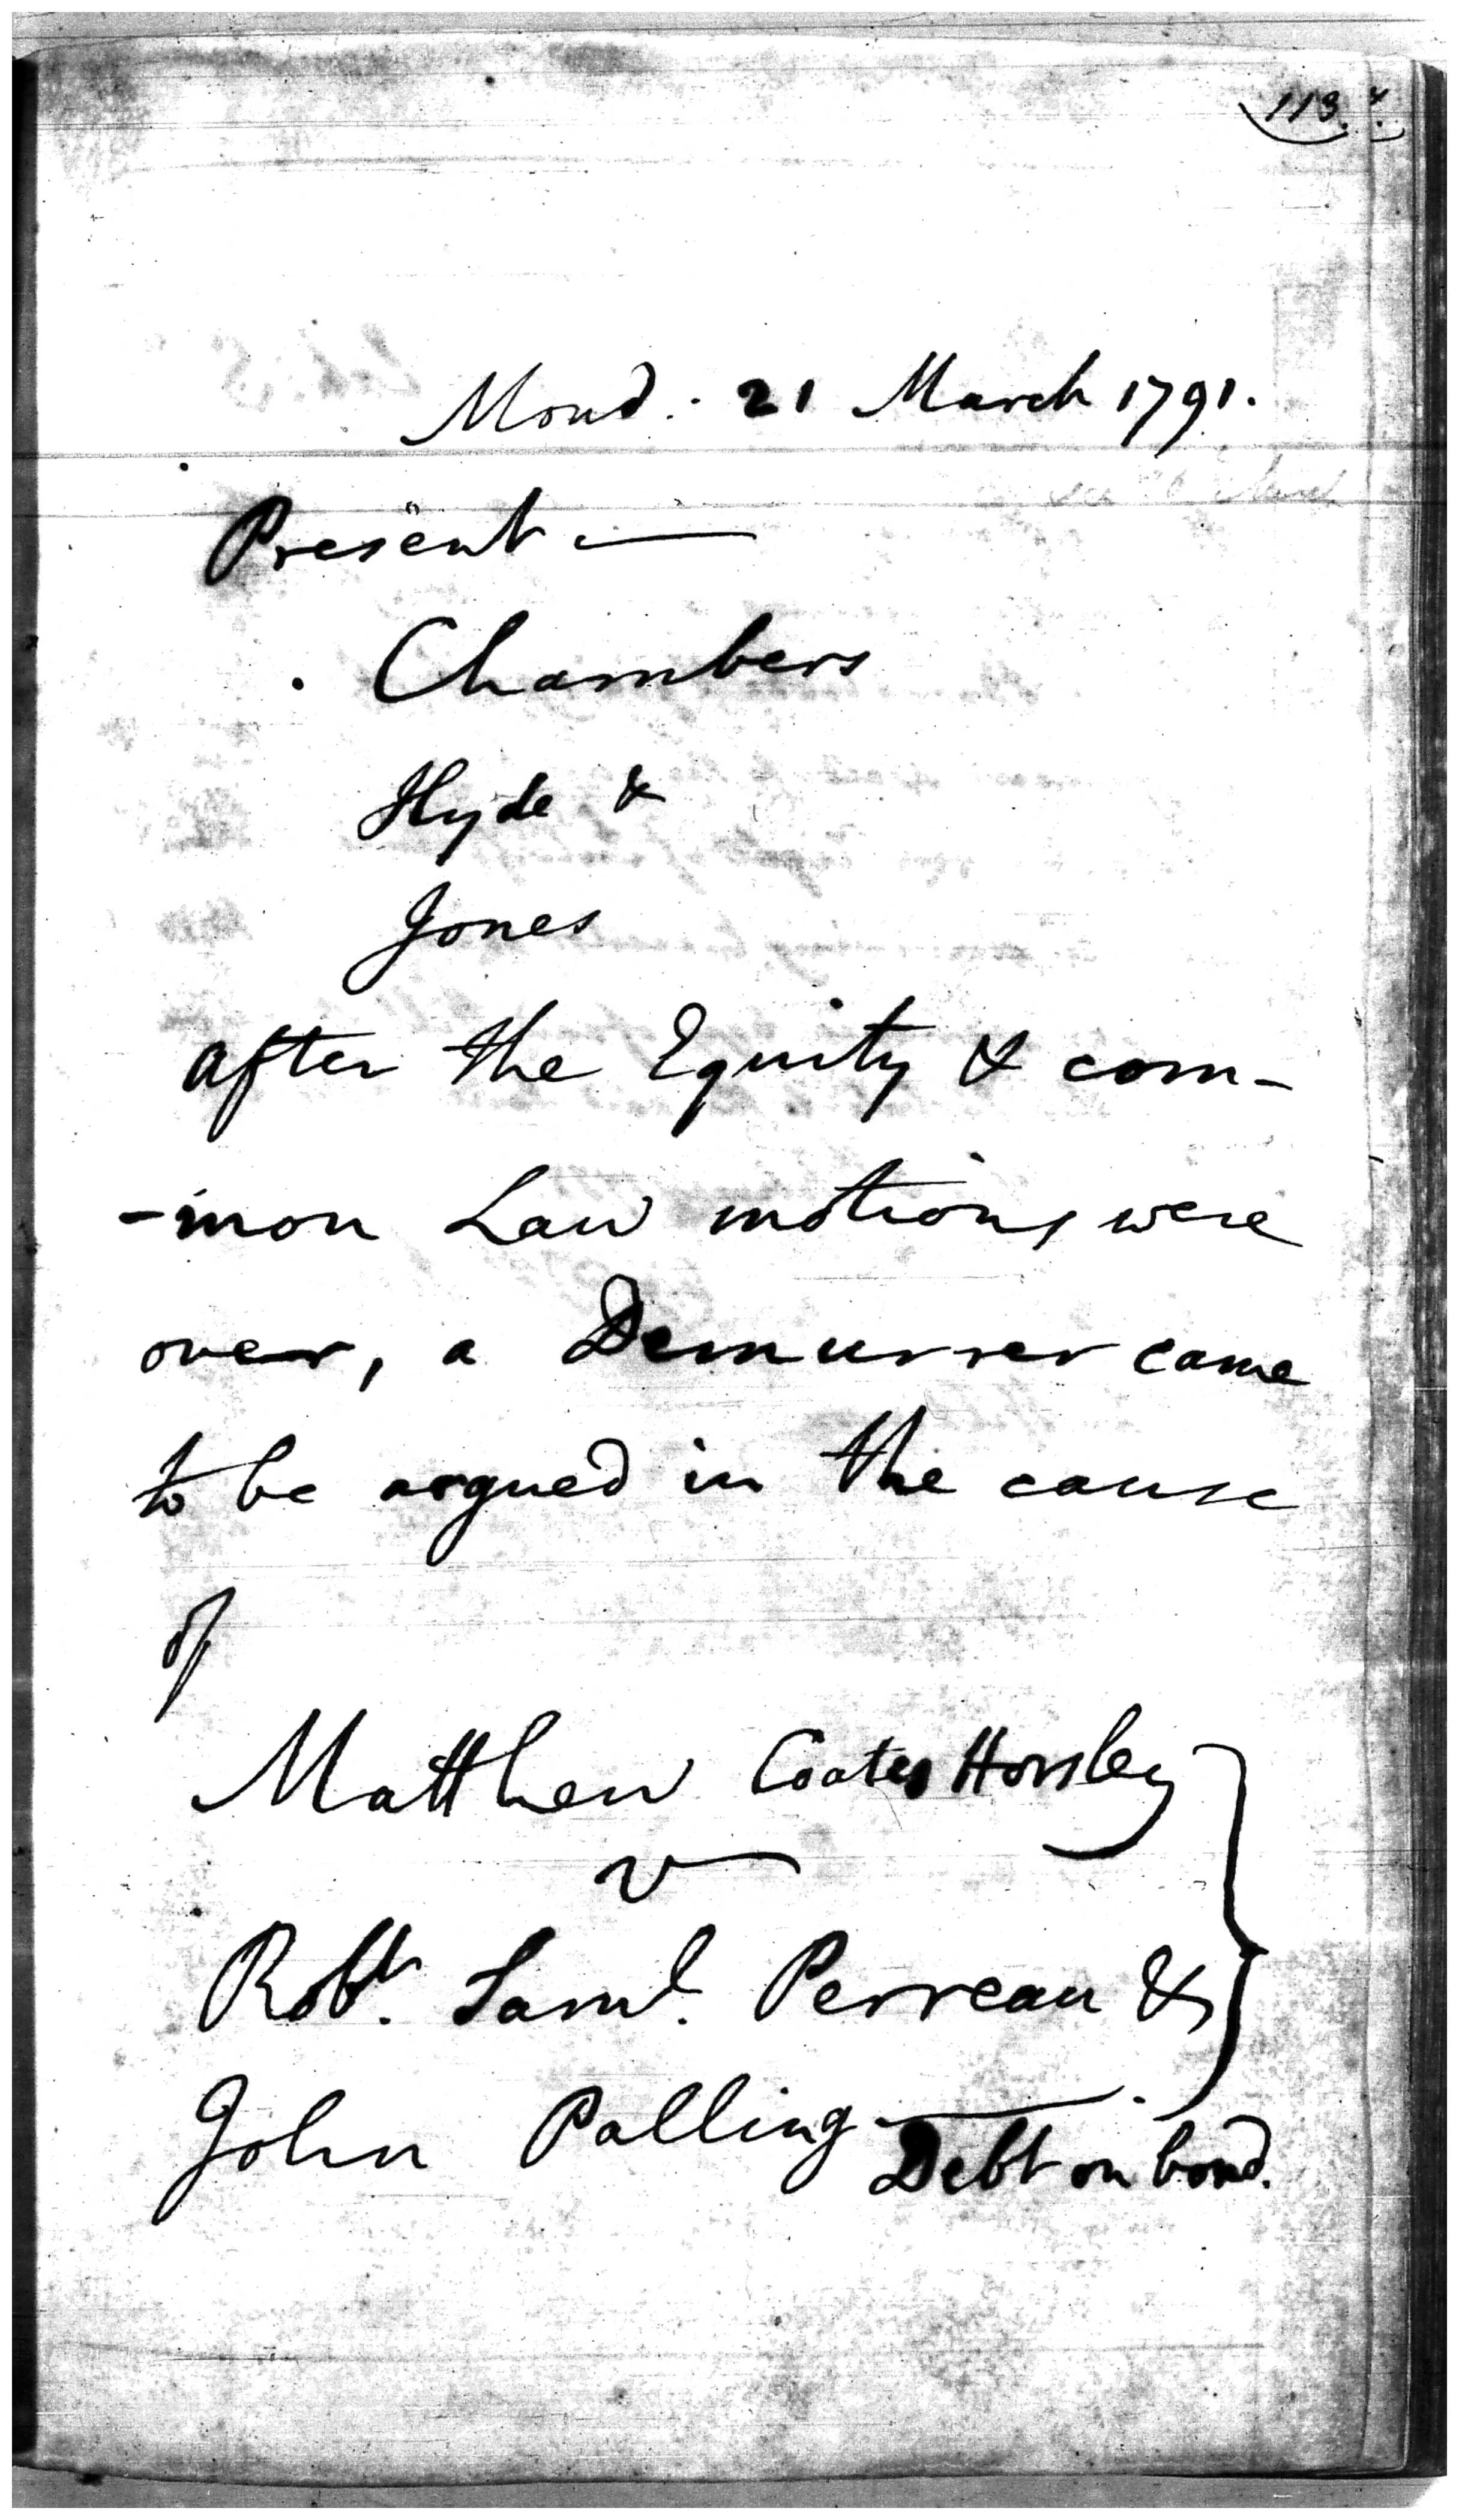 113.
Mond. 21 March 1791.
Present —
Chambers
Hyde &
Jones
after the Equity & com-
-mon Law motions were
over, a Demurrer came
to be argued in the cause
of
Matthew Coates Horsley
v
Robt. Saml. Perreau &
John Palling —
Debt on bond.